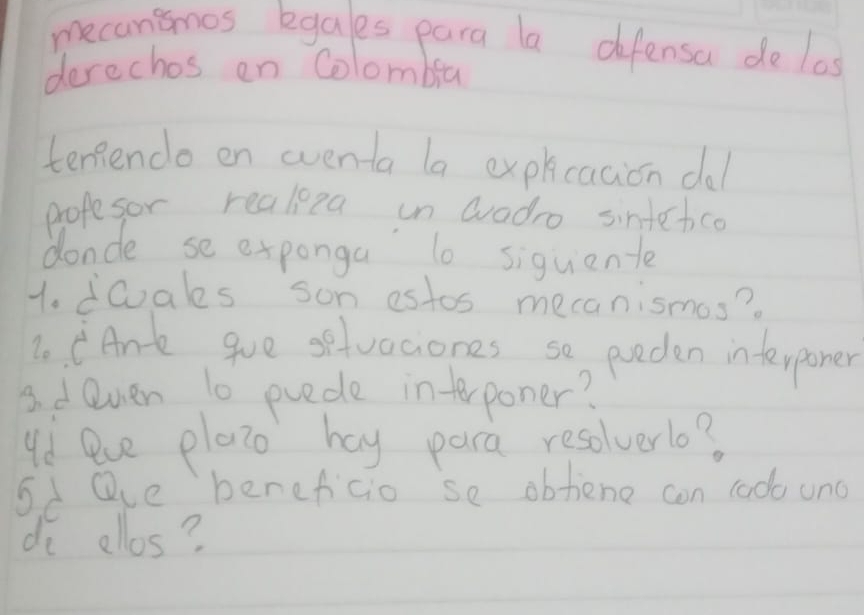 mecanismos legales para la defensa de los
derechos en Colombia
teniendo en cuenta la explicación del
profesor realiza un cuadro sintetico
donde se exponga lo siguiente
1. ¿Cuales son estos mecanismos?
2. ¿Ante que situaciones se pueden interponer
3. ¿Quien lo puede interponer?
4¿ Que plazo hay para resolverlo?
5¿ Que beneficio se obtiene con cada uno
de ellos?